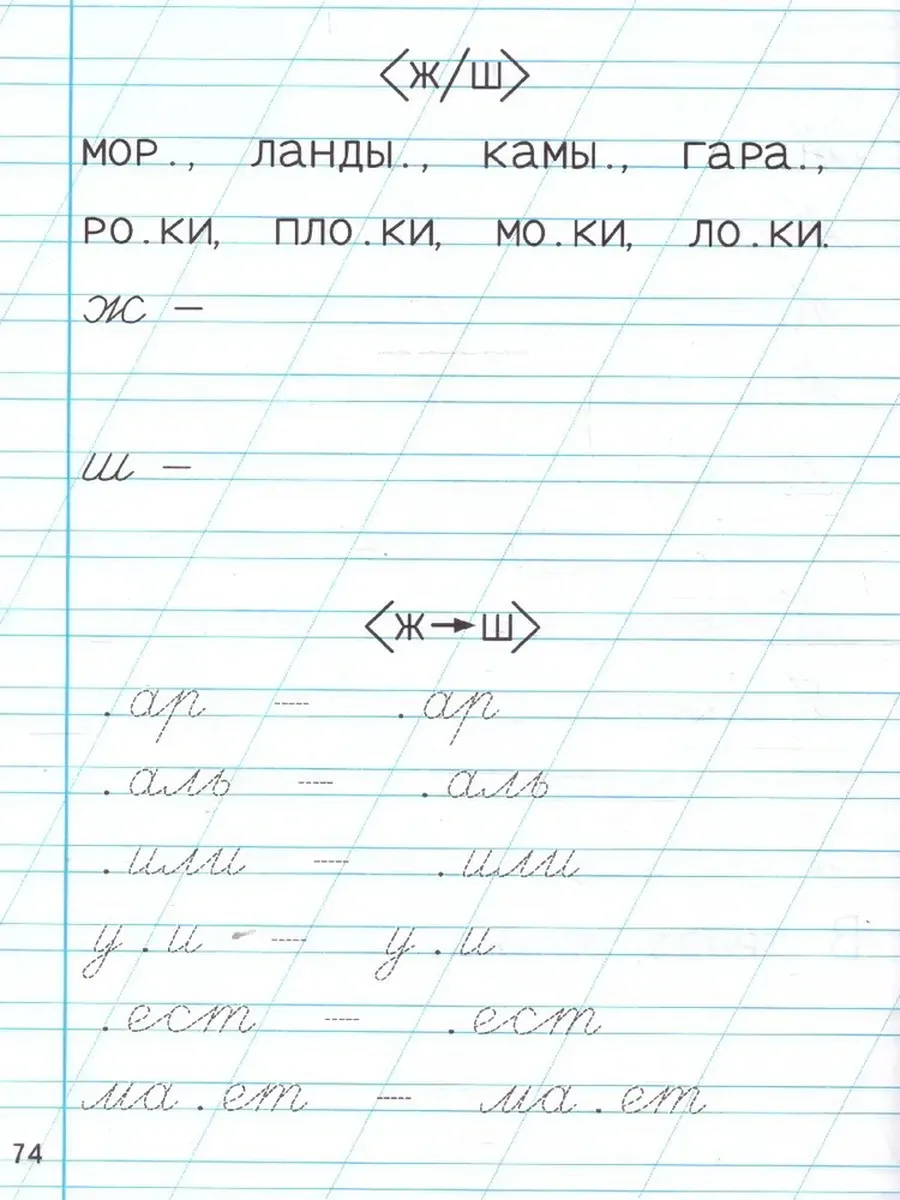 <Ж/Ш>
МОР., ЛАНДЫ., КАМЫ., ГАРА.,
РО.КИ, ПЛО.КИ, МО.КИ, ЛО.КИ.
ж –
ш –
<Ж→Ш>
.ар – .ар
.аль – .аль
.или – .или
у.и – у.и
.ест – .ест
ма.ет – ма.ет
74